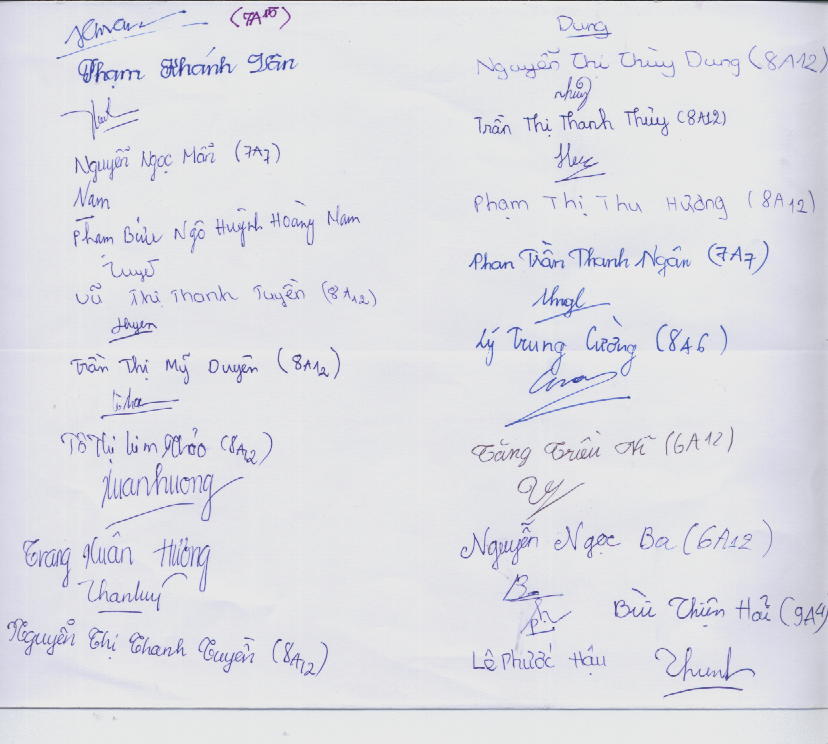 (7A15)
Phạm Khánh Vân
Nguyễn Ngọc Mẫn (7A7)
Nam
Phạm Bửu Ngô Huỳnh Hoàng Nam
Tuyề
Vũ Thị Thanh Tuyền (8A12)
Duyen
Trần Thị Mỹ Duyên (8A12)
Tô Thị Kim Thảo (8A12)
Xuanhuong
Trang Xuân Hương
Thanhuy
Nguyễn Thị Thanh Tuyền (8A12)
Dung
Nguyễn Thị Thùy Dung (8A12)
Trần Thị Thanh Thủy (8A12)
Phạm Thị Thu Hương (8A12)
Phan Trần Thanh Ngân (7A7)
Lý Trung Cường (8A6)
Tăng Triều Vĩ (6A12)
Nguyễn Ngọc Ba (6A12)
Ba
Bùi Thiện Hải (9A4)
Lê Phước Hậu